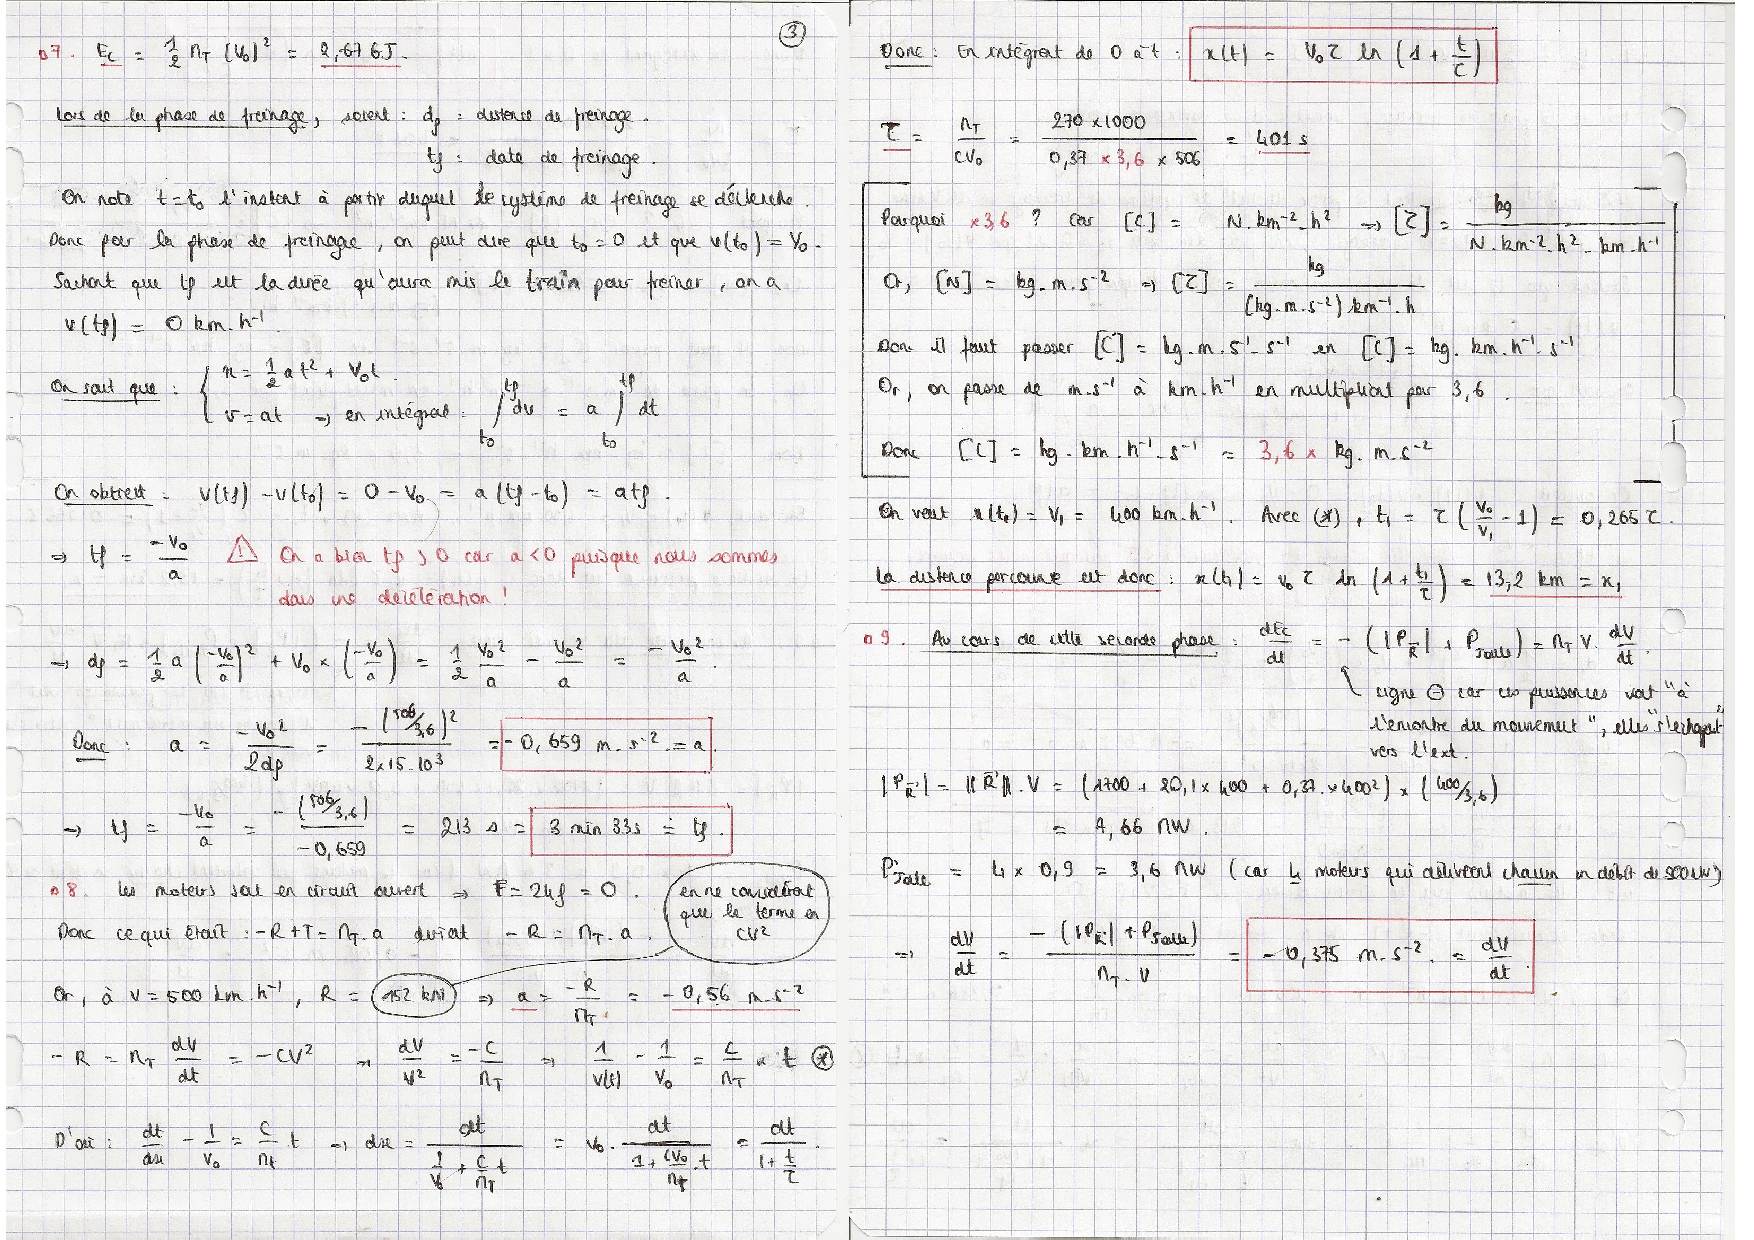 ③
n7. Ec = 1/2 MT (V0)² = 2,67 GJ.
Lors de la phase de freinage, soient : df : distance de freinage.
tf : date de freinage.
On note t = t0 l'instant à partir duquel le système de freinage se déclenche.
Donc pour la phase de freinage, on peut dire que t0 = 0 et que v(t0) = V0.
Sachant que tf est la durée qu'aura mis le train pour freiner, on a
v(tf) = 0 km.h⁻¹.
On sait que : { x = 1/2 a t² + V0t.
v = at ⇒ en intégrant : ∫t0^tf dv = a ∫t0^tf dt
On obtient : v(tf) - v(t0) = 0 - V0 = a(tf - t0) = atf.
⇒ tf = -V0/a ⚠ On a bien tf > 0 car a < 0 puisque nous sommes
dans une décélération !
→ df = 1/2 a (-V0/a)² + V0 × (-V0/a) = 1/2 V0²/a - V0²/a = -V0²/a.
Donc : a = -V0²/2df = -(506/3,6)²/2×15.10³ = -0,659 m.s⁻². = a.
→ tf = -V0/a = -(506/3,6)/-0,659 = 213 s = 3 min 33s = tf.
n8. Les moteurs sont en circuit ouvert ⇒ F = 24f = 0.
en ne considérant
que le terme en
CV²
Donc ce qui était : -R + T = MT.a devient -R = MT.a.
Or, à V = 500 km.h⁻¹, R = 152 kN ⇒ a = -R/MT = -0,56 m.s⁻²
-R = MT dV/dt = -CV² → dV/V² = -C/MT ⇒ 1/V(t) - 1/V0 = C/MT × t (*)
D'où : dt/dx - 1/V0 = C/MT t → dx = dt/(1/V0 + C/MT t) = V0 . dt/(1 + CV0/MT .t) = dt/(1 + t/τ).
Donc : En intégrant de 0 à t : x(t) = V0 τ ln (1 + t/τ)
τ = MT/CV0 = 270 × 1000/0,37 × 3,6 × 506 = 401 s
Pourquoi ×3,6 ? car [C] = N.km⁻².h² ⇒ [τ] = kg/N.km⁻².h².km.h⁻¹
Or, [N] = kg.m.s⁻² ⇒ [τ] = kg/(kg.m.s⁻²) km⁻¹.h
Donc il faut passer [C] = kg.m.s⁻¹.s⁻¹ en [C] = kg.km.h⁻¹.s⁻¹
Or, on passe de m.s⁻¹ à km.h⁻¹ en multipliant par 3,6.
Donc [C] = kg.km.h⁻¹.s⁻¹ = 3,6 × kg.m.s⁻²
On veut x(t1) = V1 = 400 km.h⁻¹. Avec (*), t1 = τ (V0/V1 - 1) = 0,265 τ.
La distance parcourue est donc : x(t1) = V0 τ ln (1 + t1/τ) = 13,2 km = x1
n9. Au cours de cette seconde phase : dEc/dt = -(|PR| + PJoule) = MT V. dV/dt.
signe ⊖ car ces puissances vont "à
l'encontre du mouvement", elles "s'échappent"
vers l'ext.
|PR| = ||R||.V = (1700 + 20,1 × 400 + 0,37 × 400²) × (400/3,6)
= 7,66 MW.
PJoule = 4 × 0,9 = 3,6 MW (car 4 moteurs qui délivrent chacun un débit de 900 kW)
⇒ dV/dt = -(|PR| + PJoule)/MT.V = -0,375 m.s⁻². = dV/dt.